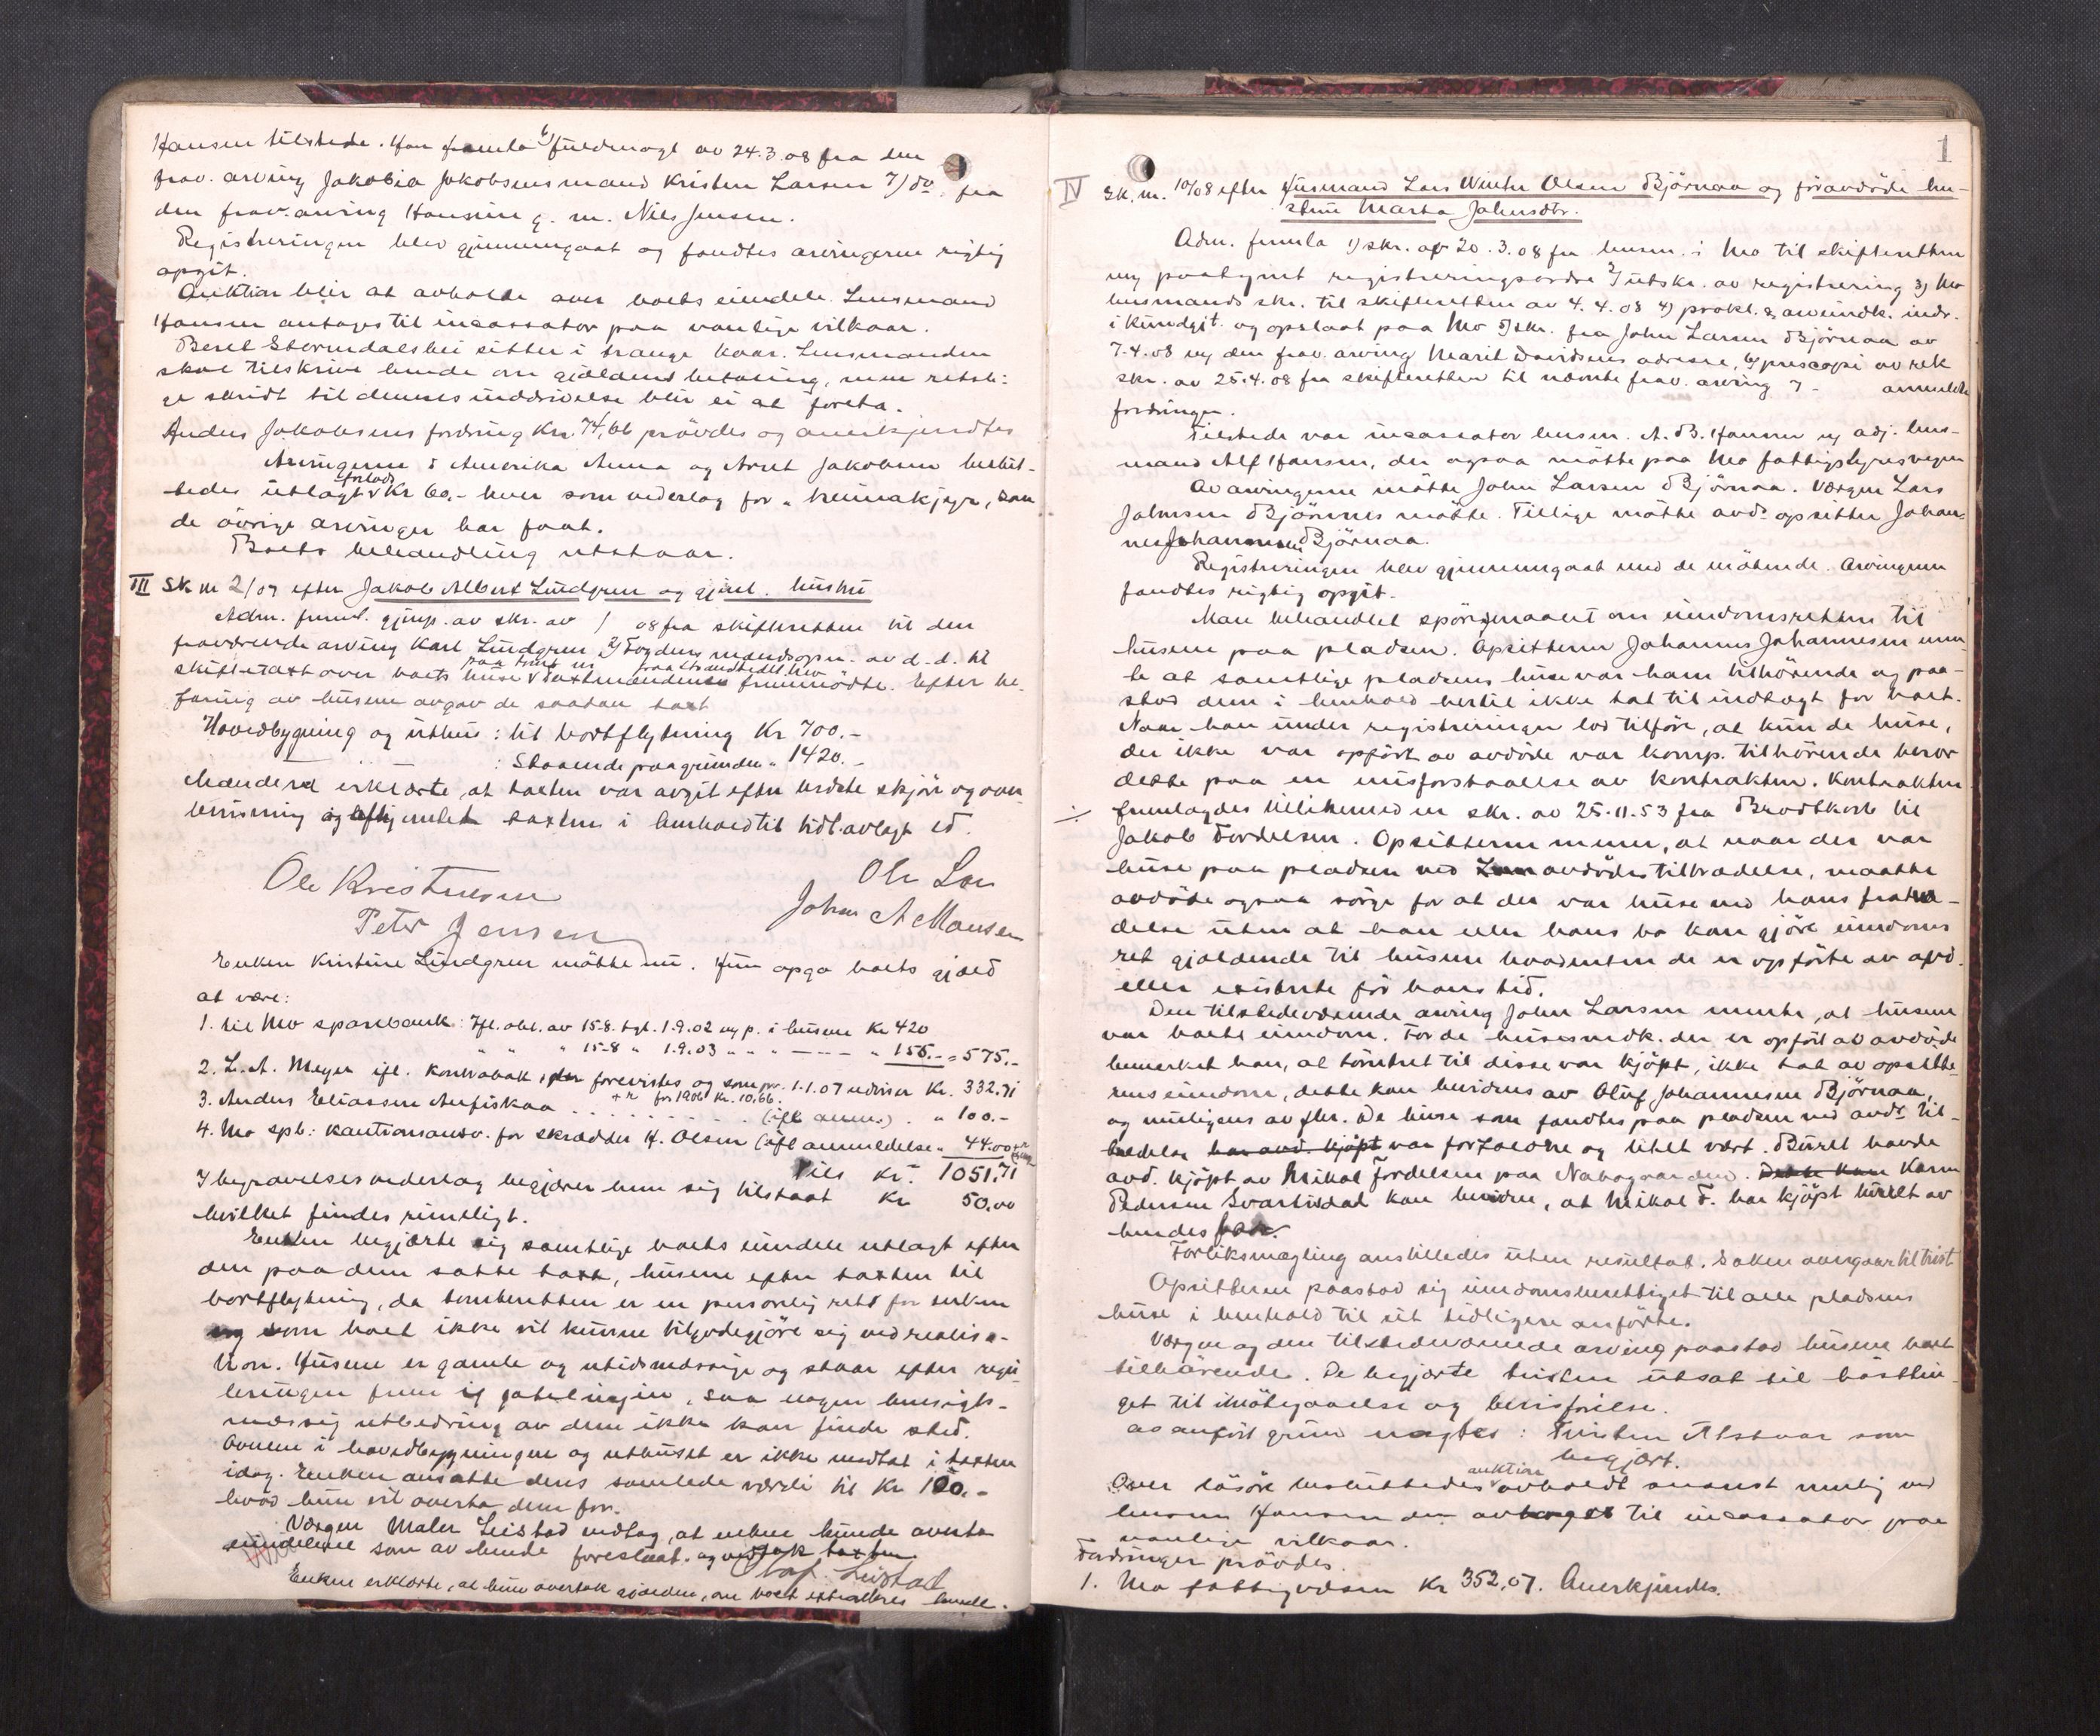 Hansen tilstede. Han fremla 6) fuldmagt av 24.3.08 fra den
frav. arving Jakobia Jakobsens mand Kristen Larsen 7) do. fra
den frav. arving Hansine g. m. Nils Jensen.
Registreringen blev gjennemgaat og fandtes arvingerne rigtig
opgit.
Auktion blir at avholde over boets eiendele. Lensmand
Hansen antages til incassator paa vanlige vilkaar.
Beret Stormdalshei sitter i trange kaar. Lensmanden
skal tilskrive hende om gjældens betaling, men retsli-
ge skridt til dennes inddrivelse blir ei at foreta.
Anders Jakobsens fordring Kr. 74,66 prövdes og anerkjendtes
Arvingerne i Amerika Anna og Arnt Jakobsen beslut-
tedes utlagt forlods Kr 60.- hver som vederlag for heimakjyr, som
de övrige arvinger har faat.
Boets behandling utstaar.
III Sk. nr 2/07 efter Jakob Albert Lindgren og gjenl. hustru
Adm. freml. gjenp. av skr. av / 08 fra skifteretten til den
fraværende arving Karl Lindgren 2) Fogdens mændsopn. av d.d. til
skiftetaxt over boets huse Taxtmændene fremmödte. Efter be-
faring av husene avgav de saadan taxt
Hovedbygning og uthus: til bortflytning Kr 700.-
: Staaende paa grunden " 1420.-
Mændene erklærte, at taxten var avgit efter bedste skjön og over-
bevisning og avhjemlet taxten i henhold til tidl. avlagt ed.
Ole Kristensen Ole Lar
Peter Jensen Johan A Mansen
Enken Kristine Lindgren mötte nu. Hun opga boets gjæld
at være:
1. til Mo sparebank: Ifl. obl. av 15-8. tgl. 1.9.02 m. p. i husene Kr 420
" 15-8 " 1.9.03 " " " - - - " 155.- = 575.-
2. L. A. Meyer ifl. kontrabok, der forevistes og som pr. 1.1.07 utviser Kr. 332.71
+ r for 1906 Kr. 10,66.
3. Anders Eliassen Aufiskaa . . . . . . . (ifl. anm.) . " 100.-
4. Mo spb: kautionsansv. for skrædder H. Olsen (ifl anmeldelse " 44.00 + r
Tils Kr. 1051,71
I begravelsesvederlag begjærer hun sig tilstaat Kr 50.00
hvilket findes rimeligt.
Enken begjærte sig samtlige boets eiendele utlagt efter
den paa dem satte taxt, husene efter taxten til
bortflytning, da tomteretten er en personlig rett for enken
som boet ikke vil kunne tilgodegjöre sig ved realisa-
tion. Husene er gamle og utidsmæssige og staar efter regu-
leringen frem i gatelinjen, saa nogen hensigts-
mæssig utbedring av dem ikke kan finde sted.
Ovnene i hovedbygningen og uthuset er ikke medtat i taxten
idag. Enken ansatte dens samlede værdi til Kr 100.-
hvad hun vil overta dem for.
Værgen Maler Leistad vedtog, at enken kunde overta
eiendelene som av hende foreslaat. og vedtok taxten
Olaf Leistad
Enken erklærte, at hun overtok gjælden, om boet extraderes hende.
1
IV Sk. nr. 10/08 efter Husmand Lars Winter Olsen Björnaa og föravdöde hu-
stru Marta Johnsdtr.
Adm. fremla 1) skr. av 20.3.08 fra lensm. i Mo til skifteretten
m paategnet registreringsordre 2) utskr. av registrering 3) Mo
lensmands skr. til skifteretten av 4.4.08 4) prokl. & arveindk. indr.
i kundgjt. og opslaat paa Mo 5) skr. fra John Larsen Björnaa av
7.4.08 m. den frav. arving Marit Davidsens adresse, 6) prescopi av rek
skr. av 25.4.08 fra skifteretten til nævnte frav. arving 7 - anmeldte
fordringer.
Tilstede var incassator lensm. A. B. Hansen og adj. lens-
mand Alf Hansen, der ogsaa mötte paa Mo fattigstyres vegne
Av arvingerne mötte John Larsen Björnaa. Værgen Lars
Johnsen Björnnes mötte. Tillige mötte avd.s opsitter Johan-
nes Johannesen Björnaa.
Registreringen blev gjennemgaat med de mötende. Arvingerne
fandtes rigtig opgit.
Man behandlet spörsmaalet om eiendomsretten til
husene paa pladsen. Opsitteren Johannes Johannesen men-
te at samtlige pladsens huse var ham tilhörende og paa-
stod dem i henhold hertil ikke tat til indtægt for boet.
Naar han under registreringen lod tilföre, at kun de huse,
der ikke var opfört av avdöde var komp. tilhörende beror
dette paa en misforstaaelse av kontrakten. Kontrakten
fremlagdes tillikemed en skr. av 25.11.53 fra Brodtkorb til
Jakob Fordelsen. Opsitteren mener, at naar der var
huse paa pladsen ved avdödes tiltrædelse, maatte
avdöde ogsaa sörge for at der var huse ved hans fratræ-
delse uten at han eller hans bo kan gjöre eiendoms
ret gjældende til husene hvadenten de er opförte av avd.
eller existerte för hans tid.
Den tilstedeværende arving John Larsen mente, at husene
var boets eiendom. For de huses vedk. der er opfört av avdöde
bemerket han, at tömret til disse var kjöpt, ikke tat av opsitte-
rens eiendom, dette kan bevidnes av Oluf Johannesen Björnaa,
og muligens av fler. De huse som fandtes paa pladsen ved avd.s til-
trædelse har avd. kjöpt var forfaldne og litet værd. Buret havde
avd. kjöpt av Mikal Fordelsen paa Nabogaarden. Dette kan Karen
Pedersen Svartisdal kan bevidne, at Mikal F. har kjöpt buret av
hendes far.
Forliksmægling anstilledes uten resultat. Saken overgaar til tvist
Opsitteren paastod sig eiendomsberettiget til alle pladsens
huse i henhold til sit tidligere anförte.
Værgen og den tilstedeværende arving paastod husene boet
tilhörende. De begjærte tvisten utsat til hösttin-
get til imötegaaelse og bevisförelse.
as anfört grund vegtes: Tvisten Utstaar som
begjært.
Over lösöre besluttedes auktion avholdt snarest mulig ved
lensm Hansen der antages til incassator paa
vanlige vilkaar.
Fordringer prövdes.
1. Mo fattigvæsen Kr 352,07. Anerkjendes.